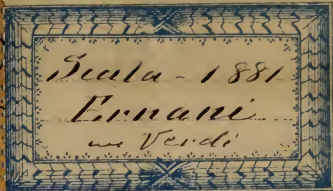 Scala - 1881
Ernani
Verdi